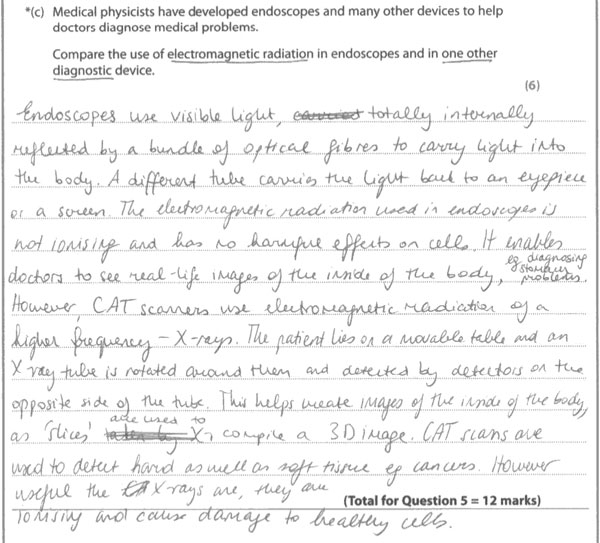 *(c) Medical physicists have developed endoscopes and many other devices to help
doctors diagnose medical problems.
Compare the use of electromagnetic radiation in endoscopes and in one other
diagnostic device.
(6)
Endoscopes use visible light, carried totally internally
reflected by a bundle of optical fibres to carry light into
the body. A different tube carries the light back to an eyepiece
or a screen. The electromagnetic radiation used in endoscopes is
not ionising and has no harmful effects on cells. It enables
doctors to see real-life images of the inside of the body, eg diagnosing stomach problems.
However, CAT scanners use electromagnetic radiation of a
higher frequency - X-rays. The patient lies on a movable table and an
X ray tube is rotated around them and detected by detectors on the
opposite side of the tube. This helps create images of the inside of the body,
as 'slices' are used to compile a 3D image. CAT scans are
used to detect hard as well as soft tissue eg cancers. However
useful the X rays are, they are
(Total for Question 5 = 12 marks)
ionising and cause damage to healthy cells.